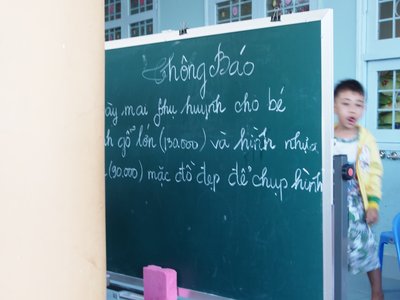 Thông Báo
ày mai phu huynh cho bé
h gỗ lớn (130.000) và hình nhựa
(90.000) mặc đồ đẹp để chụp hình